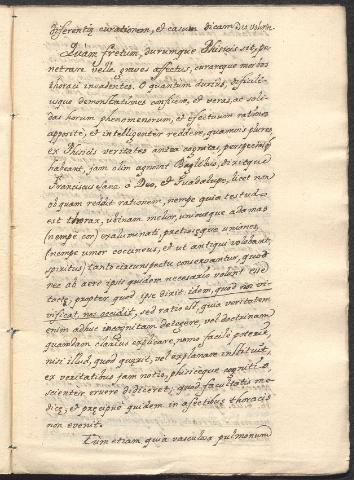 differentiæ curationem, et casum dicam Du volven.
Quam fretum, durumque Phisicis sit, pe
netrare velle graves affectus, curareque morbos
thoraci incidentes. O quantum durius, difficili
usque demonstrationes conficere, et veras, ac soli
das horum phenomenorum, et effectuum rationes
apposite, et intelligenter reddere, quamvis plures
ex Phisicis veritates antea cognitas, perspectas
habeant, jam olim agnovit Baglibus, dixitque
Franciscus Sanz a Deo, et Guadalupe, licet non
ob quam reddit rationem, nempe quia testudo
est thorax, utinam melior, unumque adamas
(nempe cor) et aluminati, pactisque uniones,
(nempe umor coccineus, et ut antiqui volebant,
spiritus) tanto circunspectu conservantur, quod
nec ab aere ipsis quidem necessario volunt esse
tocte, propter quod ipse dixit: idem, quod nos vi
vificat, nos occidit, sed ratio est, quia veritatem
enim adhuc incognitam detegere, vel doctrinam
quamdam clarius explicare, nemo facile poterit
nisi illud, quod quærit, vel explanare instituit,
ex veritatibus jam notis, phisiceque cognitis
scienter eruere didicerit; quod facultatis me
dicæ, et præcipue quidem in afectibus thoracis
non evenit.
Tum etiam quia vascula pulmonum